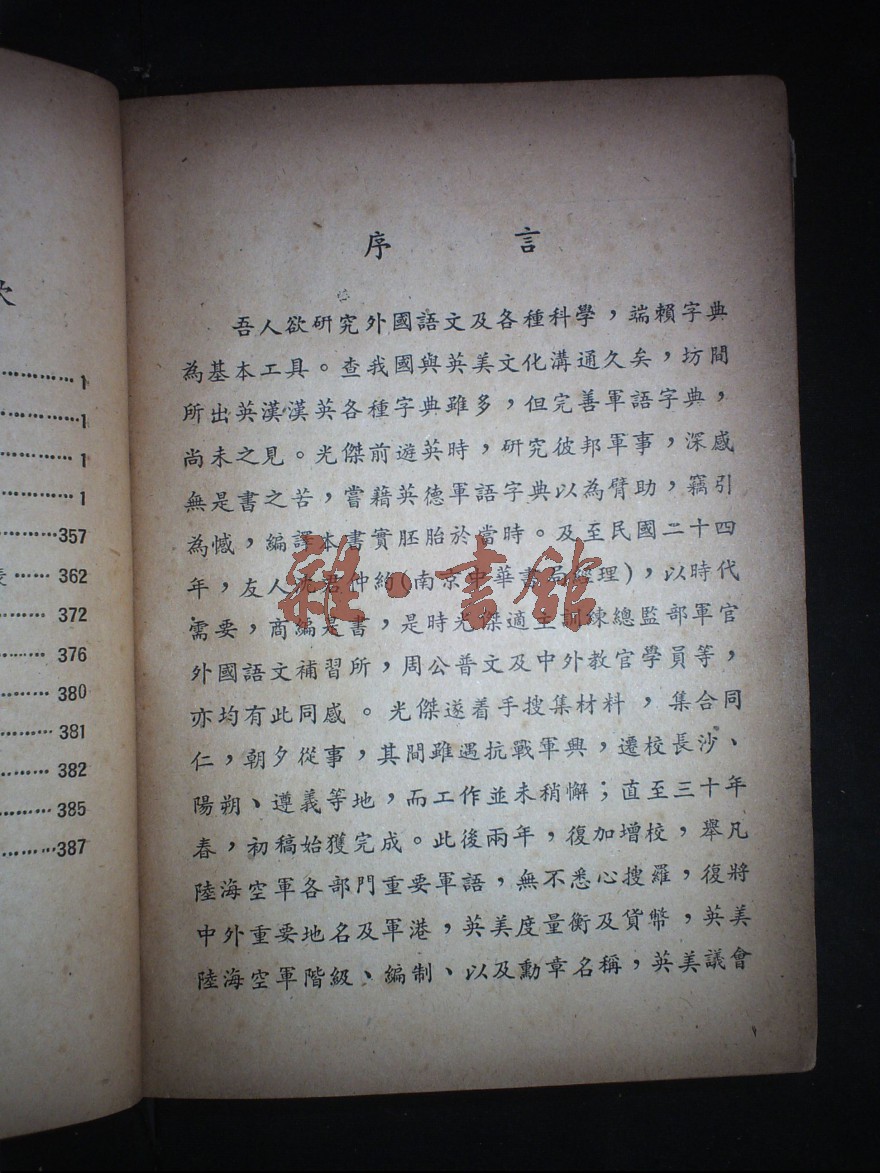 次
1
1
1
1
357
362
372
376
380
381
382
385
387
序 言
吾人欲研究外國語文及各種科學，端賴字典
為基本工具。查我國與英美文化溝通久矣，坊間
所出英漢漢英各種字典雖多，但完善軍語字典，
尚未之見。光傑前遊英時，研究彼邦軍事，深感
無是書之苦，嘗藉英德軍語字典以為臂助，竊引
為憾，編譯本書實胚胎於當時。及至民國二十四
年，友人沈君仲約(南京中華書局經理)，以時代
需要，商編是書，是時光傑適主訓練總監部軍官
外國語文補習所，周公普文及中外教官學員等，
亦均有此同感。光傑遂着手搜集材料，集合同
仁，朝夕從事，其間雖遇抗戰軍興，遷校長沙、
陽朔、遵義等地，而工作並未稍懈；直至三十年
春，初稿始獲完成。此後兩年，復加增校，舉凡
陸海空軍各部門重要軍語，無不悉心搜羅，復將
中外重要地名及軍港，英美度量衡及貨幣，英美
陸海空軍階級、編制、以及勳章名稱，英美議會
雜·書館